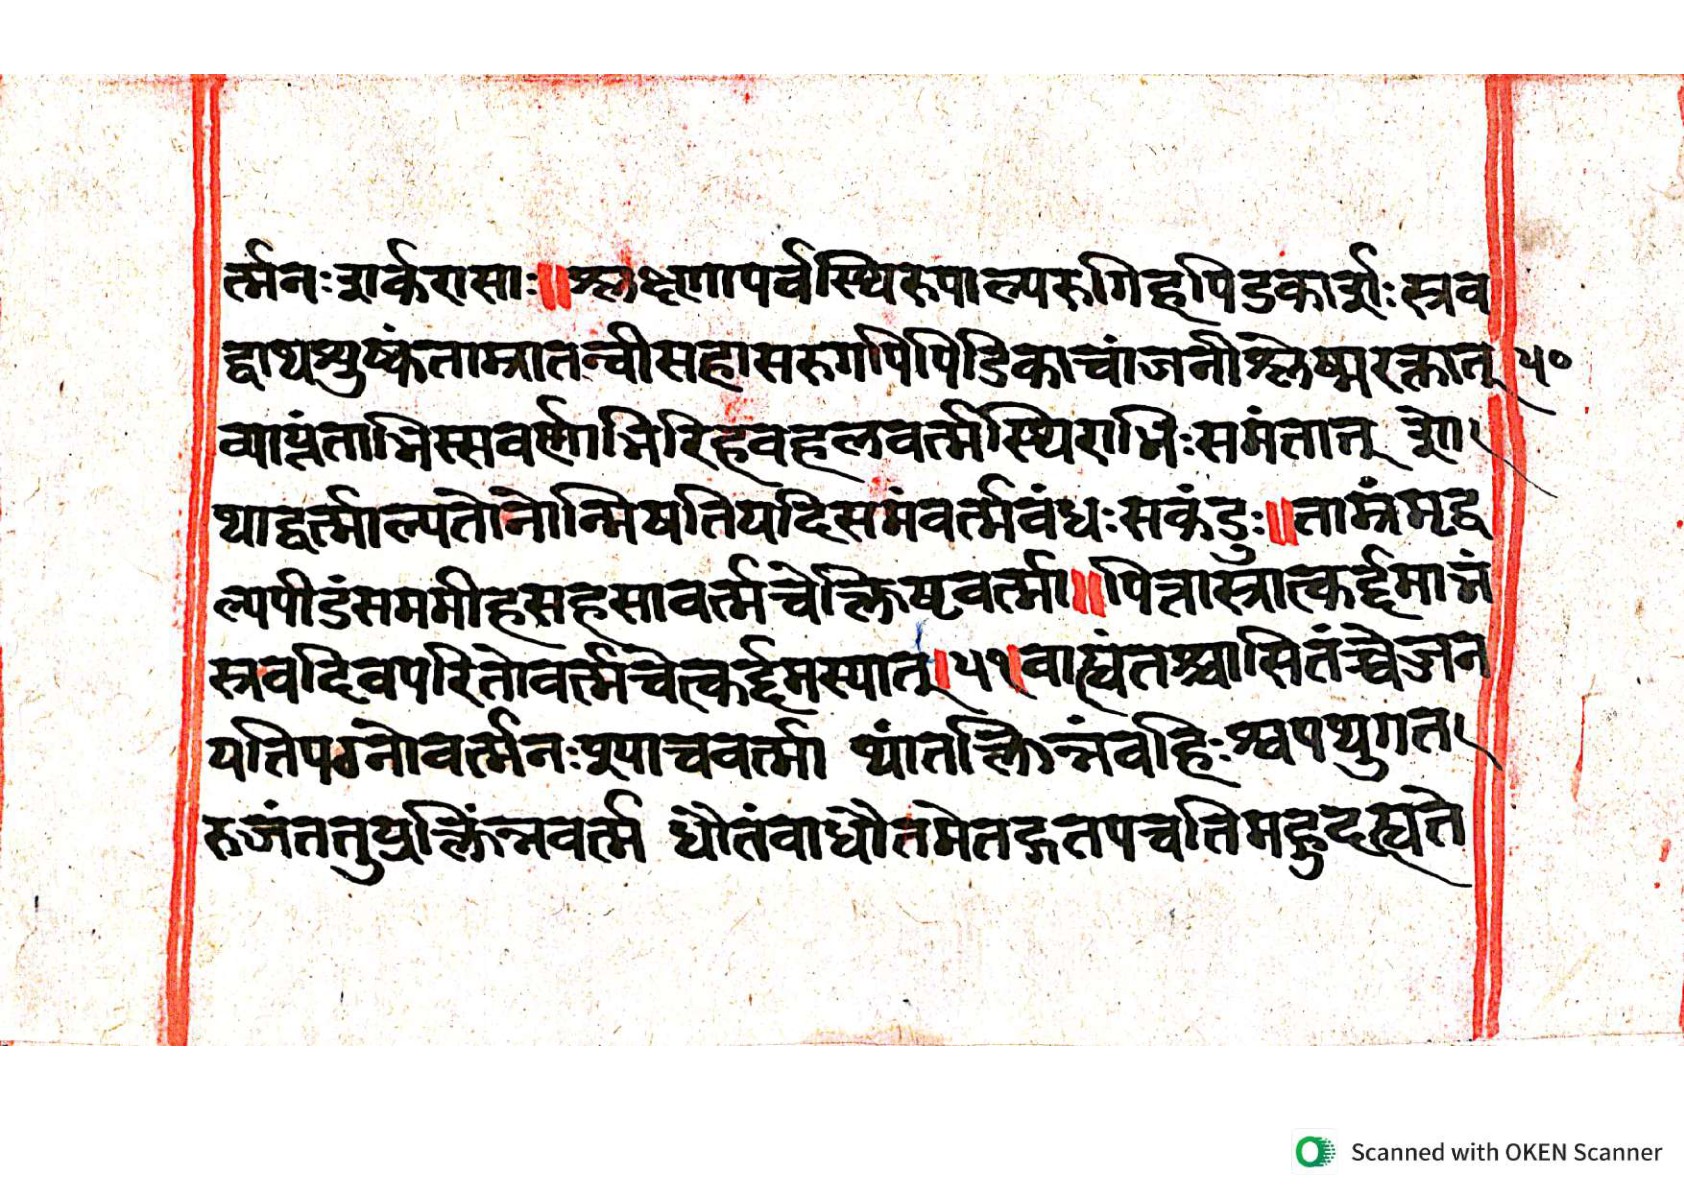 र्त्मनःशर्करासाः॥श्लक्ष्णापर्वस्थिरुपाल्परुगिहपिडकार्शःस्त्रव
द्वाथशुष्कंताम्रातन्वीसहासरुगपिपिडिकाचांजनीश्लेष्मरक्तात् ५०
व्याप्तंताभिस्सवर्णाभिरिहवहलवर्त्मस्थिराभिःसमंतात् शो
थाद्वर्त्माल्पतोनोन्मिषतियदिसमंवर्त्मवंधःसकंडुः॥ताम्रंमृद्व
ल्पपीडंसममीहसहसावर्त्मचेक्लिष्टवर्त्मा॥पित्तास्त्रात्कर्द्दमाभं
स्त्रवदिवपरितोवर्त्मचेत्कर्द्दमस्यात्।५१।वाह्यंतश्चासितंच्चेज्जन
यतिपठनोवर्त्मनःश्याचवर्त्मा थांतक्लिन्नंवहिःश्वपथुगत
रुजंततुप्रक्लिंन्नवर्त्म धौतंवाधौतमेतद्गतपचतिमद्रुदह्यते